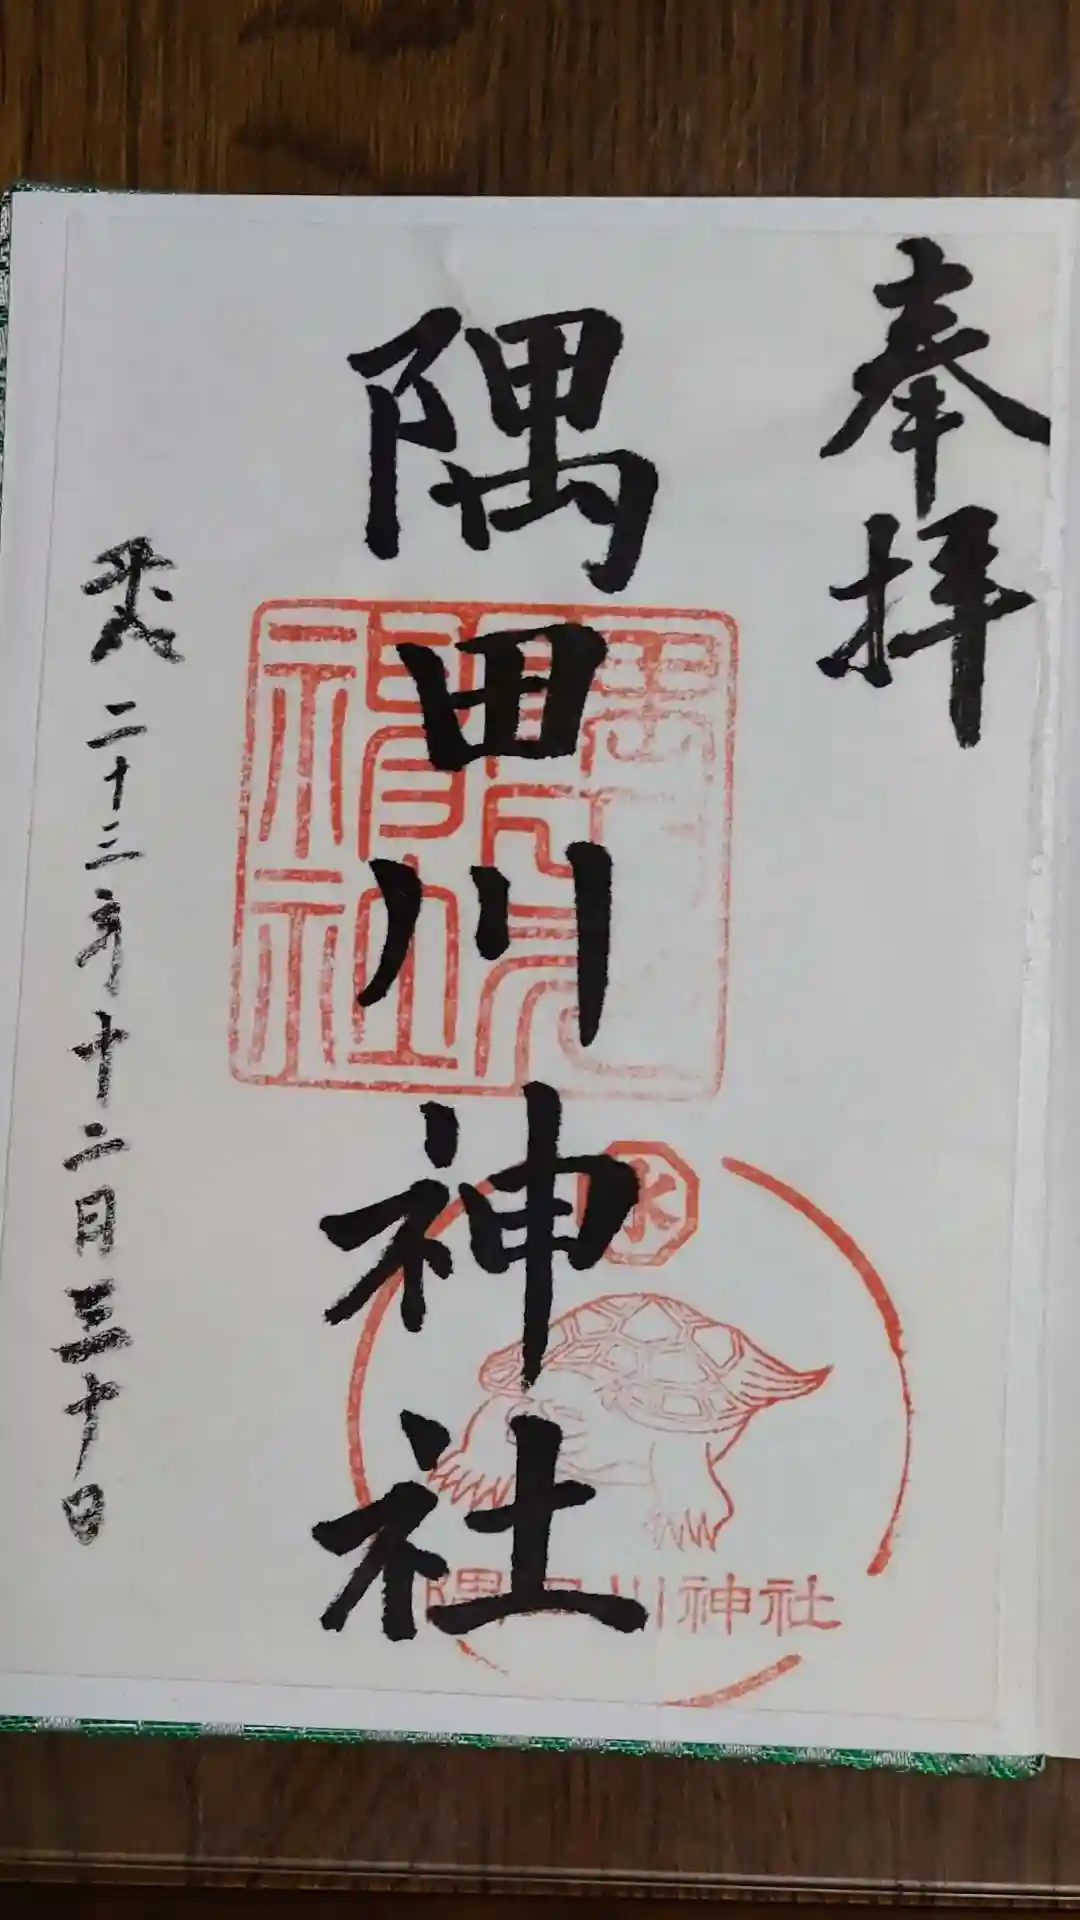 奉拝
隅田川神社
水
隅田川神社
平成二十三年十二月三十日